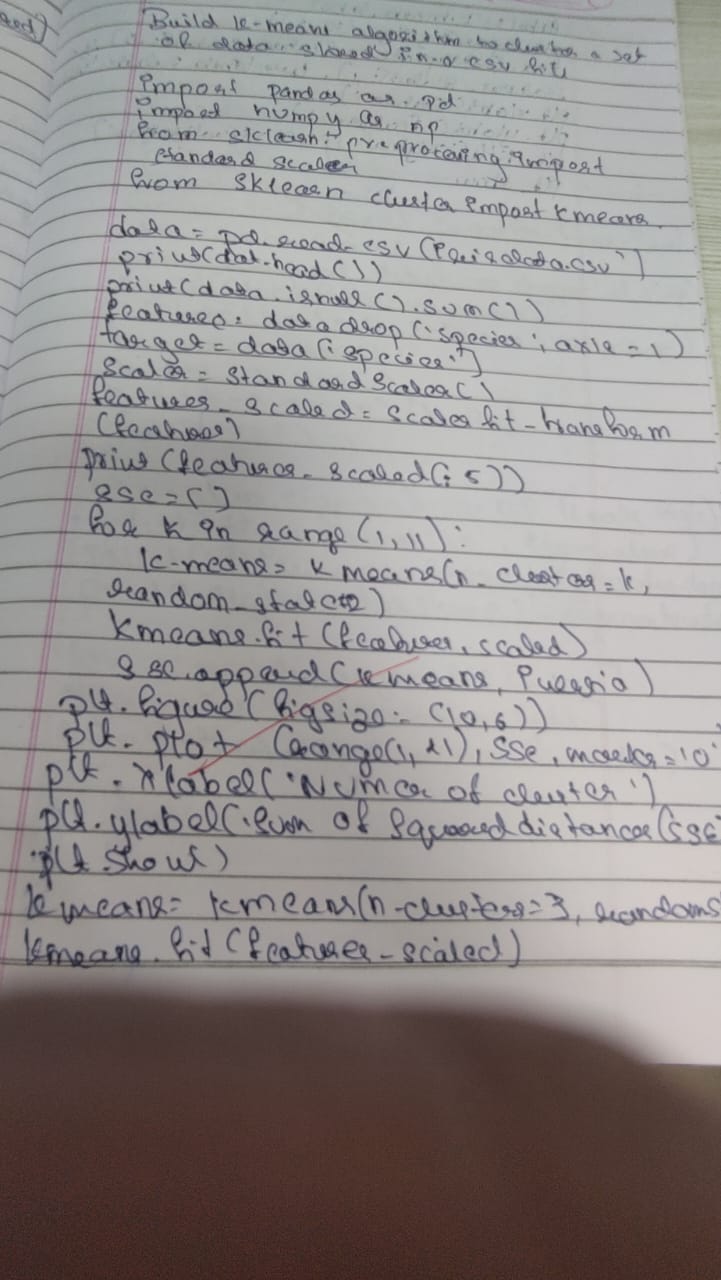 Build k-means algorithm to cluster a set
of data stored in a csv file
import pandas as pd
import numpy as np
from sklearn. preprocessing import
standard scaler
from sklearn cluster import kmeans.
data = pd. read_csv ('Iris data.csv')
print(dat.head())
print(data.isnull().sum())
features = data drop('species', axis = 1)
target = data['species']
Scaler = Standard Scaler()
features_scaled = Scaler fit-transform
(features)
print (features_scaled(: 5))
sse = []
for k in range(1,11):
k-means = kmeans(n_cluster = k,
random_state=2)
kmeans.fit (features_scaled)
sse.append(kmeans,
plt.figure(figsize = (10,6))
plt. plot (range(1, 11), SSE, marker='o'
plt. xlabel('Number of cluster')
plt.ylabel('sum of squared distances (SSE
plt.show()
kmeans= kmeans(n-clusters=3, randoms
kmeans.fit(features_scaled)